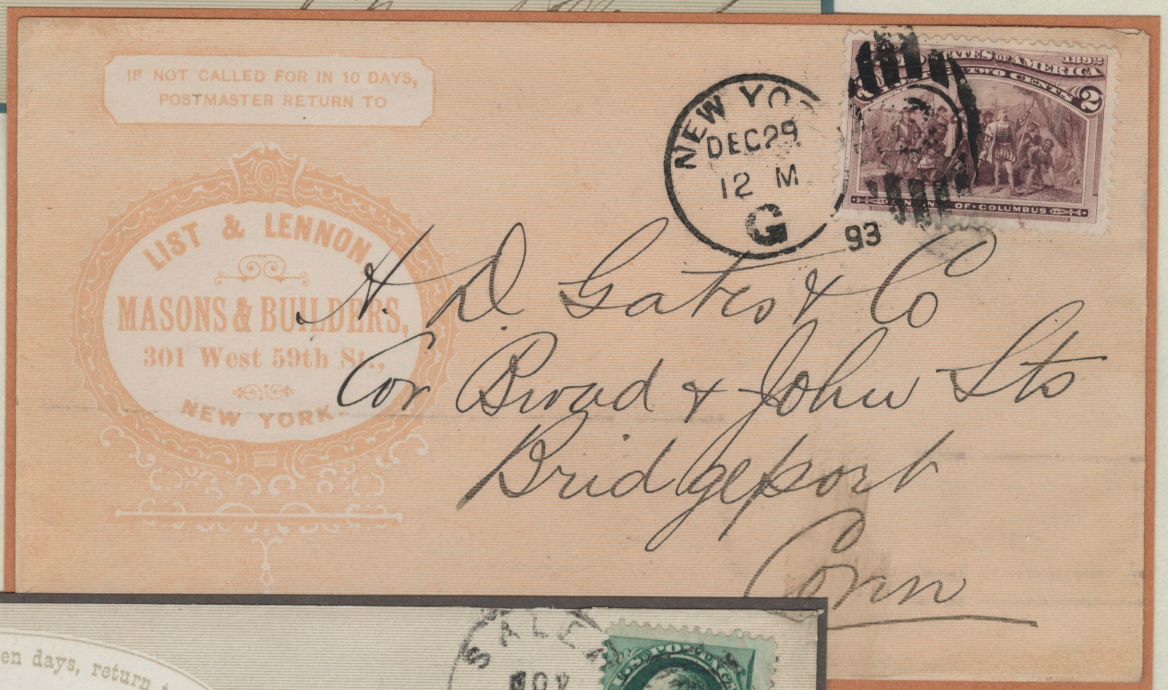 IF NOT CALLED FOR IN 10 DAYS,
POSTMASTER RETURN TO
LIST & LENNON,
MASONS & BUILDERS,
301 West 59th St.,
NEW YORK.
NEW YO
DEC 29
12 M
G
93
STATES OF AMERICA
1892
TWO CENTS
2
OF COLUMBUS
H. D. Gates & Co
Cor Broad & John Sts
Bridgeport
Conn
en days, return
SALE
NOV
U.S. POST